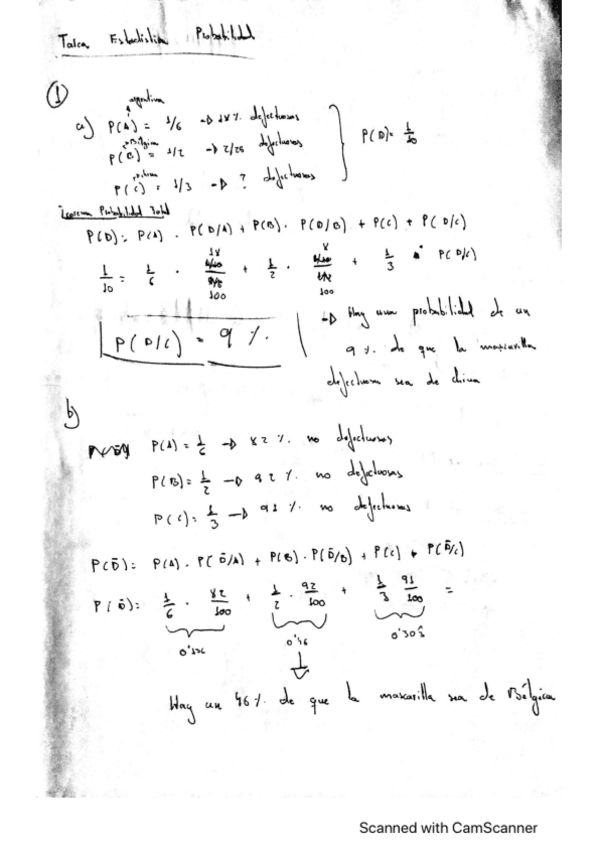 Tarea Estadística Probabilidad
①
argentina
a) P(A) = 1/6 → 18% defectuosas
Bélgica
P(B) = 1/2 → 2/25 defectuosas
P(D) = 1/10
china
P(C) = 1/3 → ? defectuosas
Teorema Probabilidad Total
P(D): P(A) · P(D/A) + P(B) · P(D/B) + P(C) + P(D/C)
1/10 = 1/6 · 18/100 + 1/2 · 8/100 + 1/3 · P(D/C)
P(D/C) = 9%
→ Hay una probabilidad de un
9% de que la mascarilla
defectuosa sea de china
b)
P(A) = 1/6 → 82% no defectuosas
P(B) = 1/2 → 92% no defectuosas
P(C) = 1/3 → 91% no defectuosas
P(D̄): P(A) · P(D̄/A) + P(B) · P(D̄/B) + P(C) + P(D̄/C)
P(D̄): 1/6 · 82/100 + 1/2 · 92/100 + 1/3 91/100 =
0'46
Hay un 46% de que la mascarilla sea de Bélgica
Scanned with CamScanner